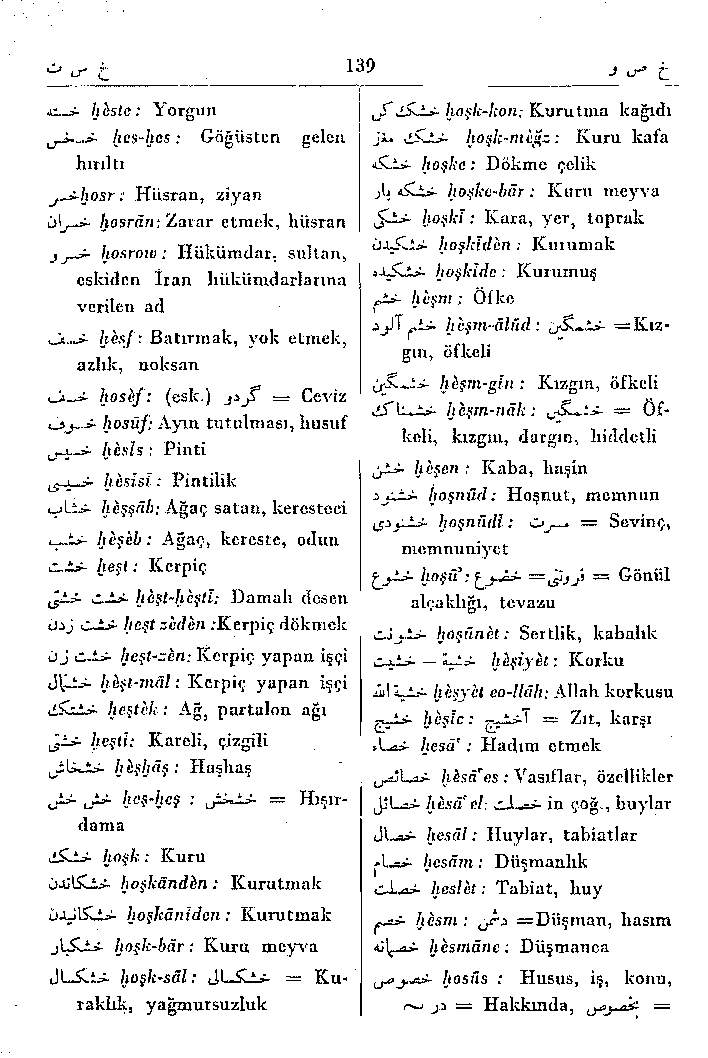 خ س ت
139
خ ص و
خسته ḫèste: Yorgun
خس خس ḫes-ḫes : Göğüsten gelen
hırıltı
خسر ḫosr : Hüsran, ziyan
خسران ḫosrān: Zarar etmek, hüsran
خسرو ḫosrow : Hükümdar, sultan,
eskiden İran hükümdarlarına
verilen ad
خسف ḫèsf : Batırmak, yok etmek,
azlık, noksan
خسف ḫosèf: (esk.) گردو = Ceviz
خسوف ḫosūf: Ayın tutulması, husuf
خسیس ḫèsîs : Pinti
خسیسی ḫèsîsî : Pintilik
خشاب ḫèşşāb: Ağaç satan, keresteci
خشب ḫèşèb : Ağaç, kereste, odun
خشت ḫeşt : Kerpiç
خشت خشتی ḫèşt-ḫèştî: Damalı desen
خشت زدن ḫeşt zèdèn :Kerpiç dökmek
خشت زن ḫeşt-zèn: Kerpiç yapan işçi
خشتمال ḫèşt-māl : Kerpiç yapan işçi
خشتک ḫeştèk : Ağ, partalon ağı
خشتی ḫeştî: Kareli, çizgili
خشخاش ḫèşḫāş : Haşhaş
خش خش ḫeş-ḫeş : خشخش = Hışır-
dama
خشک ḫoşk : Kuru
خشکاندن ḫoşkāndèn : Kurutmak
خشکانیدن ḫoşkānîden : Kurutmak
خشکبار ḫoşk-bār : Kuru meyva
خشکسال ḫoşk-sāl : خشکسال = Ku-
raklık, yağmursuzluk
خشک کن ḫoşk-kon: Kurutma kağıdı
خشک مغز ḫoşk-mèğz : Kuru kafa
خشکه ḫoşke : Dökme çelik
خشکه بار ḫoşke-bār : Kuru meyva
خشکی ḫoşkî : Kara, yer, toprak
خشکیدن ḫoşkîdèn : Kurumak
خشکیده ḫoşkîde : Kurumuş
خشم ḫèşm : Öfke
خشم آلود ḫèşm-ālūd : خشمگین =Kız-
gın, öfkeli
خشمگین ḫèşm-gîn : Kızgın, öfkeli
خشمناک ḫèşm-nāk : خشمگین = Öf-
keli, kızgın, dargın, hiddetli
خشن ḫèşen : Kaba, haşin
خشنود ḫoşnūd : Hoşnut, memnun
خشنودی ḫoşnūdî : مسرت = Sevinç,
memnuniyet
خشوع ḫoşū' : خضوع =فروتنی = Gönül
alçaklığı, tevazu
خشونت ḫoşūnèt : Sertlik, kabalık
خشیت – خشیة ḫèşiyèt : Korku
خشیة الله ḫèşyèt eo-llāh: Allah korkusu
خشیج ḫèşîc : آخشیج = Zıt, karşı
خصاء ḫesā' : Hadım etmek
خصائص ḫèsā'es : Vasıflar, özellikler
خصائل ḫèsā'el: خصلت in çoğ., huylar
خصال ḫesāl : Huylar, tabiatlar
خصام ḫesām : Düşmanlık
خصلت ḫeslèt : Tabiat, huy
خصم ḫèsm : دشمن =Düşman, hasım
خصمانه ḫèsmāne : Düşmanca
خصوص ḫosūs : Husus, iş, konu,
در ~ = Hakkında, بخصوص =